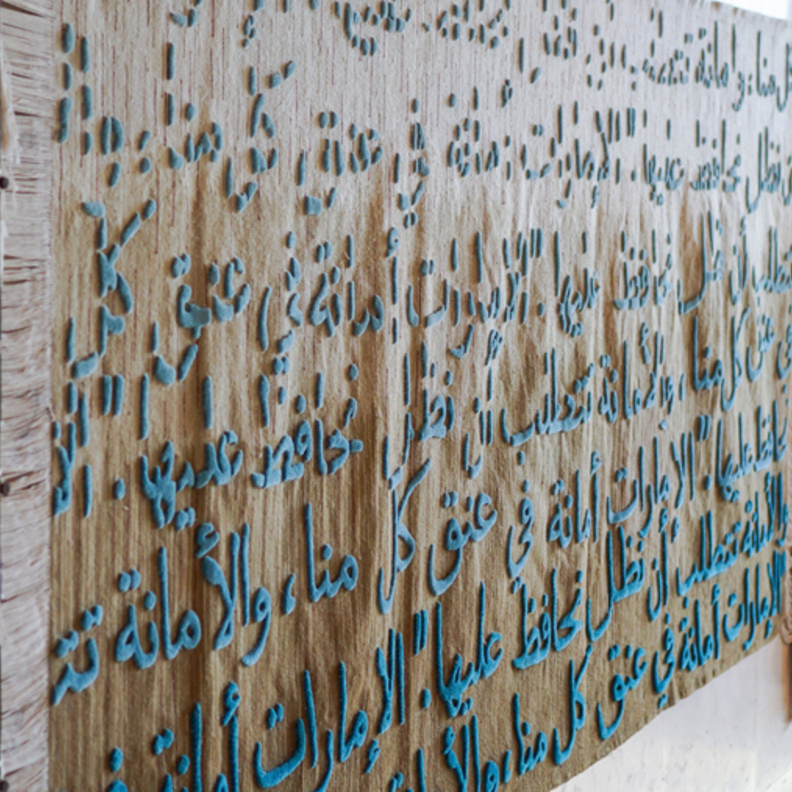 كل منا، والأمانة تتطلب
نظل نحافظ عليها." "الإمارات أمانة في عنق كل منا،
تتطلب أن نظل نحافظ عليها." "الإمارات أمانة في عنق كل
في عنق كل منا، والأمانة تتطلب أن نظل نحافظ عليها." "الإ
نحافظ عليها." "الإمارات أمانة في عنق كل منا، والأمانة تت
والأمانة تتطلب أن نظل نحافظ عليها." "الإمارات أمانة ف
"الإمارات أمانة في عنق كل منا، والأمانة